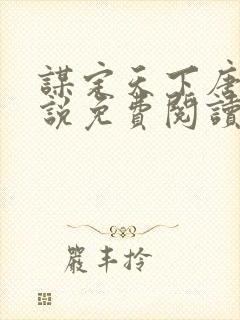 謀定天下唐
說免費閱讀
嚴丰拎